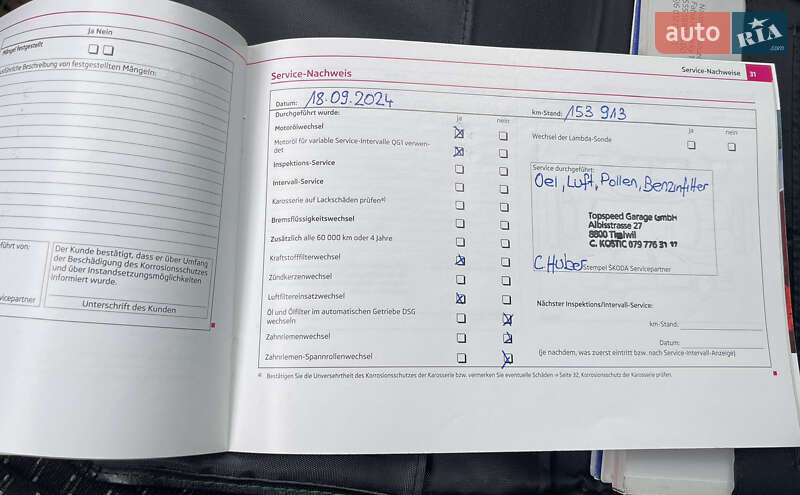 Ja Nein
Mängel festgestellt
Ausführliche Beschreibung von festgestellten Mängeln:
Der Kunde bestätigt, dass er über Umfang
der Beschädigung des Korrosionsschutzes
und über Instandsetzungsmöglichkeiten
informiert wurde.
Unterschrift des Kunden
Service-Nachweis
Service-Nachweise 31
Datum: 18.09.2024
km-Stand: 153 913
Durchgeführt wurde: ja nein
Motorölwechsel
Motoröl für variable Service-Intervalle QG1 verwen-
det
Inspektions-Service
Intervall-Service
Karosserie auf Lackschäden prüfen a)
Bremsflüssigkeitswechsel
Zusätzlich alle 60 000 km oder 4 Jahre
Kraftstofffilterwechsel
Zündkerzenwechsel
Luftfiltereinsatzwechsel
Öl und Ölfilter im automatischen Getriebe DSG
wechseln
Zahnriemenwechsel
Zahnriemen-Spannrollenwechsel
ja nein
Wechsel der Lambda-Sonde
Service durchgeführt:
Oel, Luft, Pollen, Benzinfilter
Topspeed Garage GmbH
Albisstrasse 27
8800 Thalwil
C. KOSTIC 079 776 31
C. Huber
Stempel ŠKODA Servicepartner
Nächster Inspektions/Intervall-Service:
km-Stand:
Datum:
(je nachdem, was zuerst eintritt bzw. nach Service-Intervall-Anzeige)
a) Bestätigen Sie die Unversehrtheit des Korrosionsschutzes der Karosserie bzw. vermerken Sie eventuelle Schäden ⇒ Seite 32, Korrosionsschutz der Karosserie prüfen.
auto RIA .com